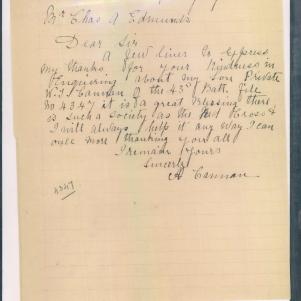 Mr Chas A Edmunds
Dear Sir
A few lines to express
my thanks for your kindness in
Enquiring about my Son Private
W.J. Cannan of the 43rd Batt. File
No 4347 it is a great Blessing there
is such a Society as the Red Cross &
I will always help it any way I can
once more thanking you all
I remain yours
Sincerly
A Cannan
4347